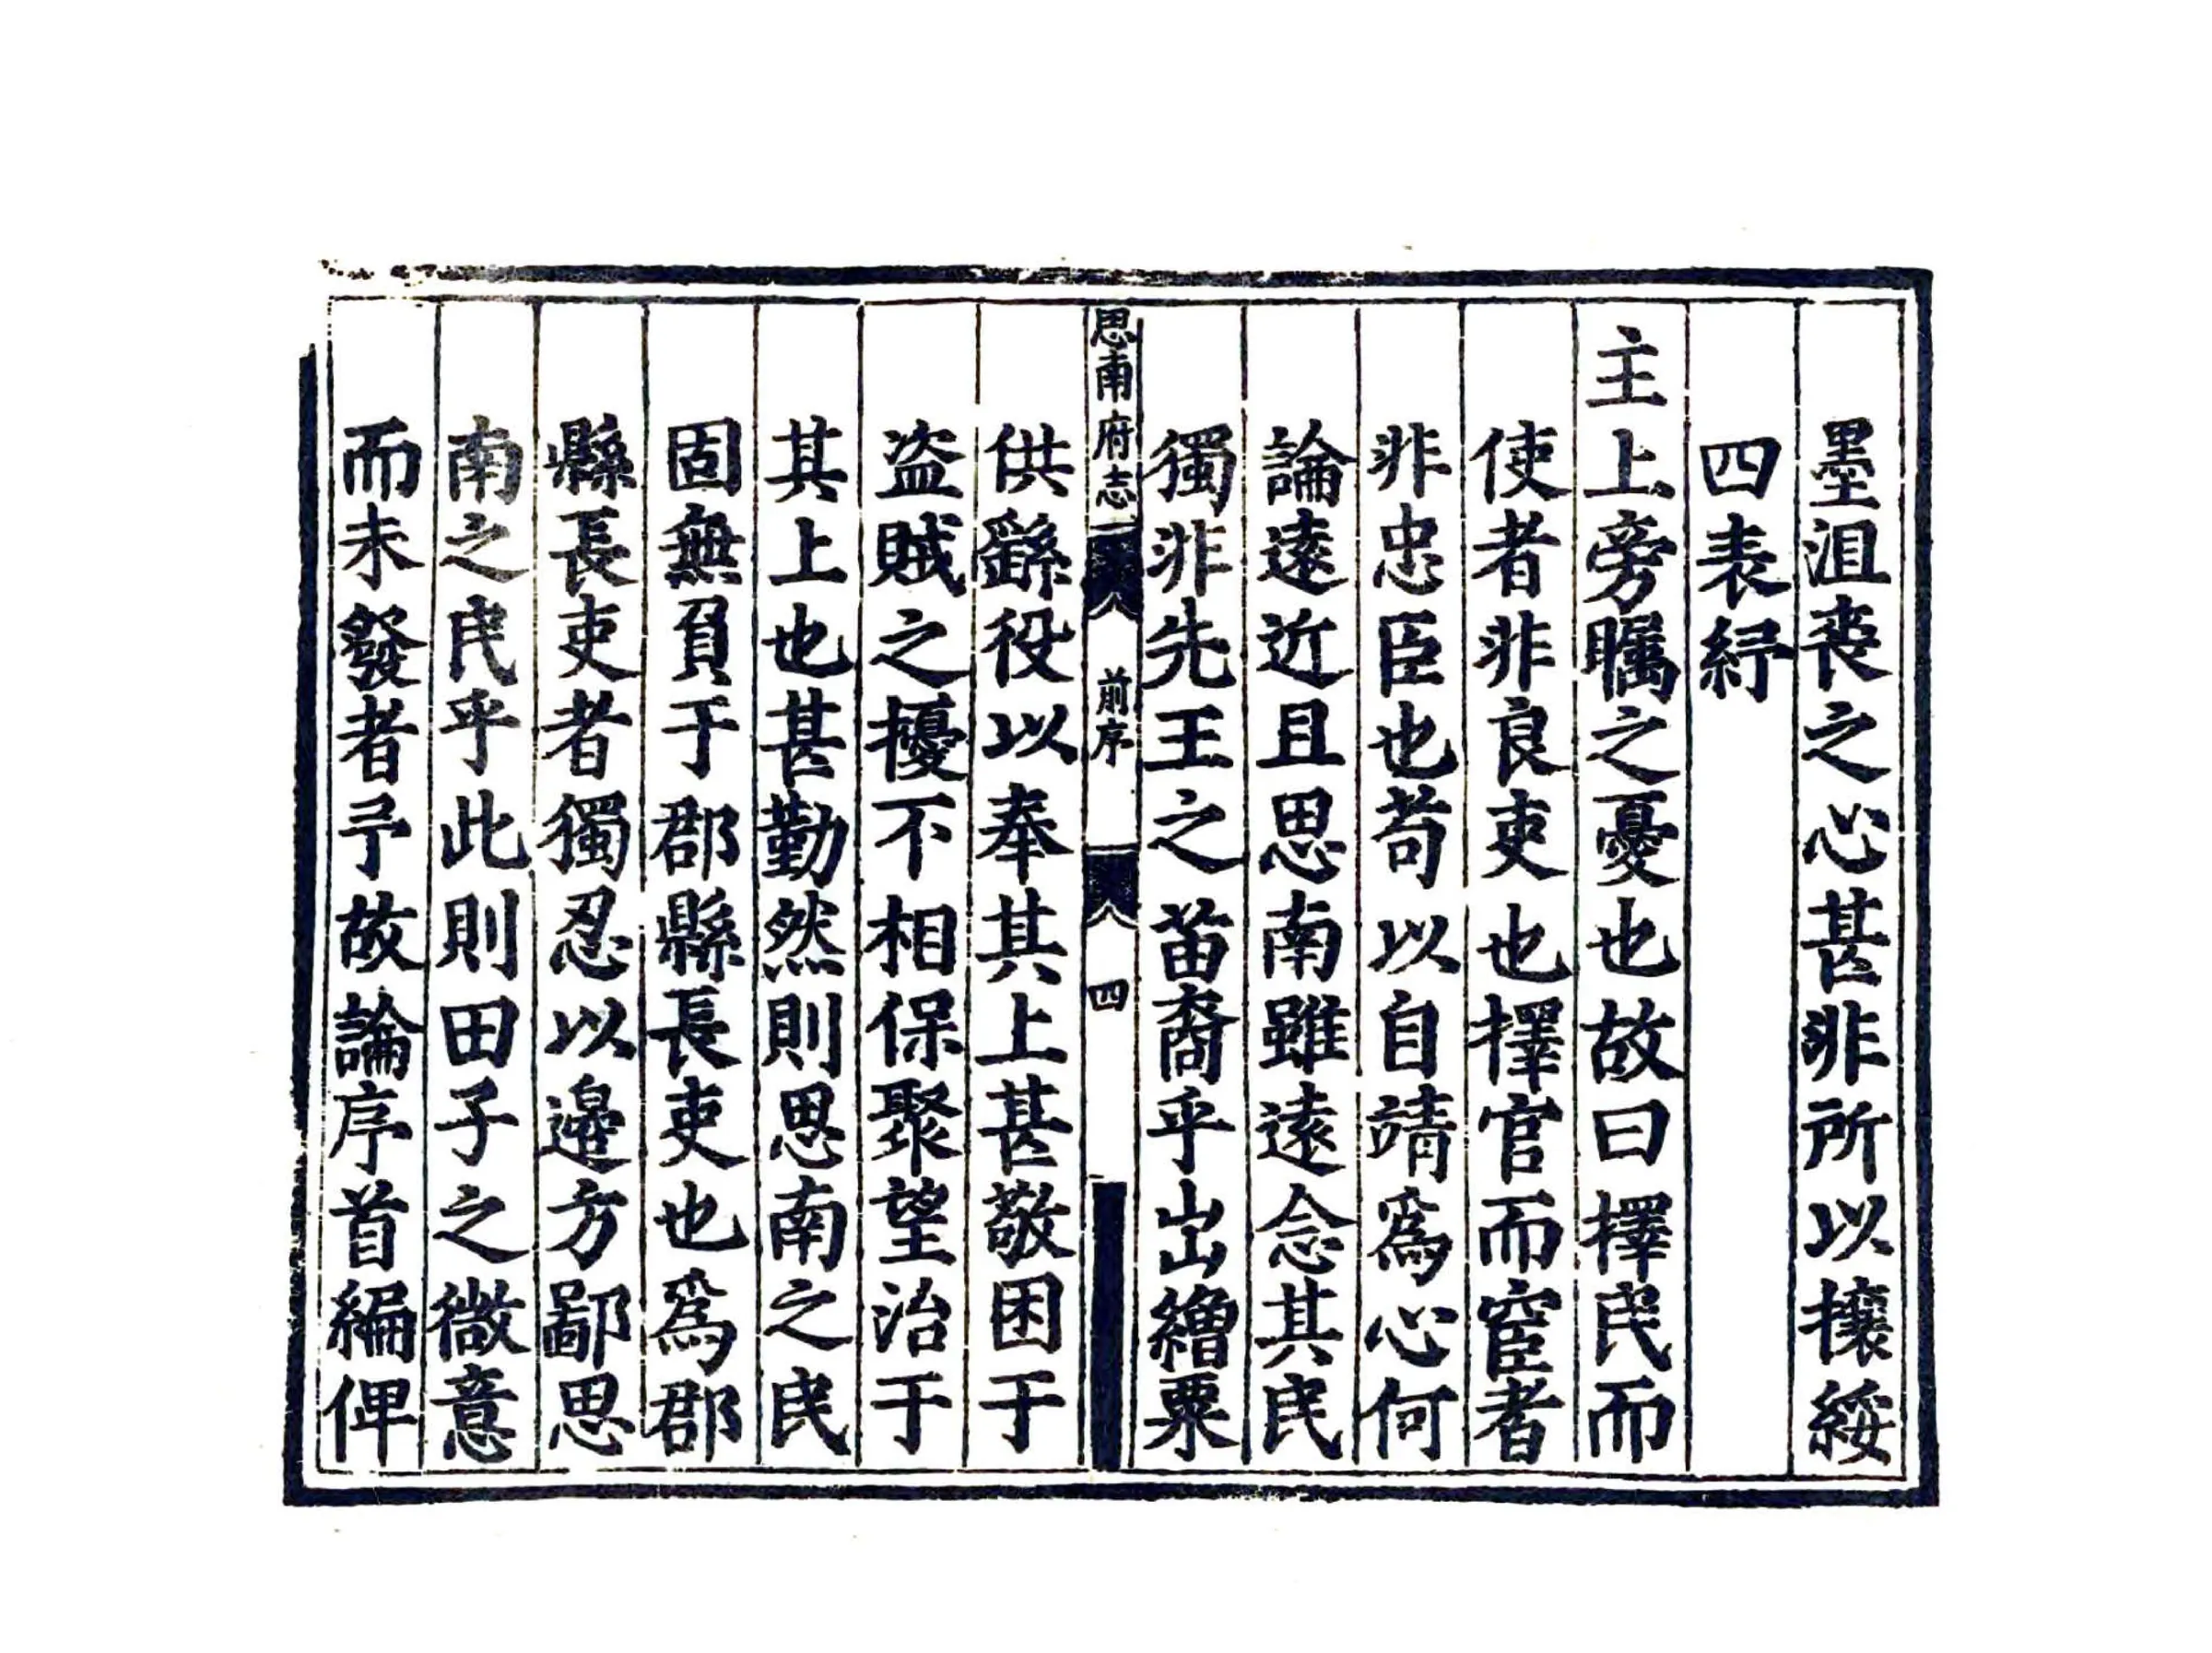 墨沮喪之心甚非所以攘綏
四表紓
主上旁矚之憂也故曰擇民而
使者非良吏也擇官而宦者
非忠臣也苟以自靖爲心何
論遠近且思南雖遠念其民
獨非先王之苗裔乎出繒粟
思南府志 前序 四
供繇役以奉其上甚敬困于
盗賊之擾不相保聚望治于
其上也甚勤然則思南之民
固無負于郡縣長吏也爲郡
縣長吏者獨忍以邊方鄙思
南之民乎此則田子之微意
而未發者予故論序首編俾